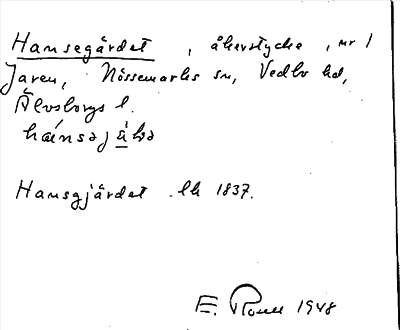 Hansegärdet, åkerstycke, nr 1
Jaren, Nössemarks sn, Vedbo hd,
Älvsborgs l.
Hansgjärdet lh 1837.
E. 1948